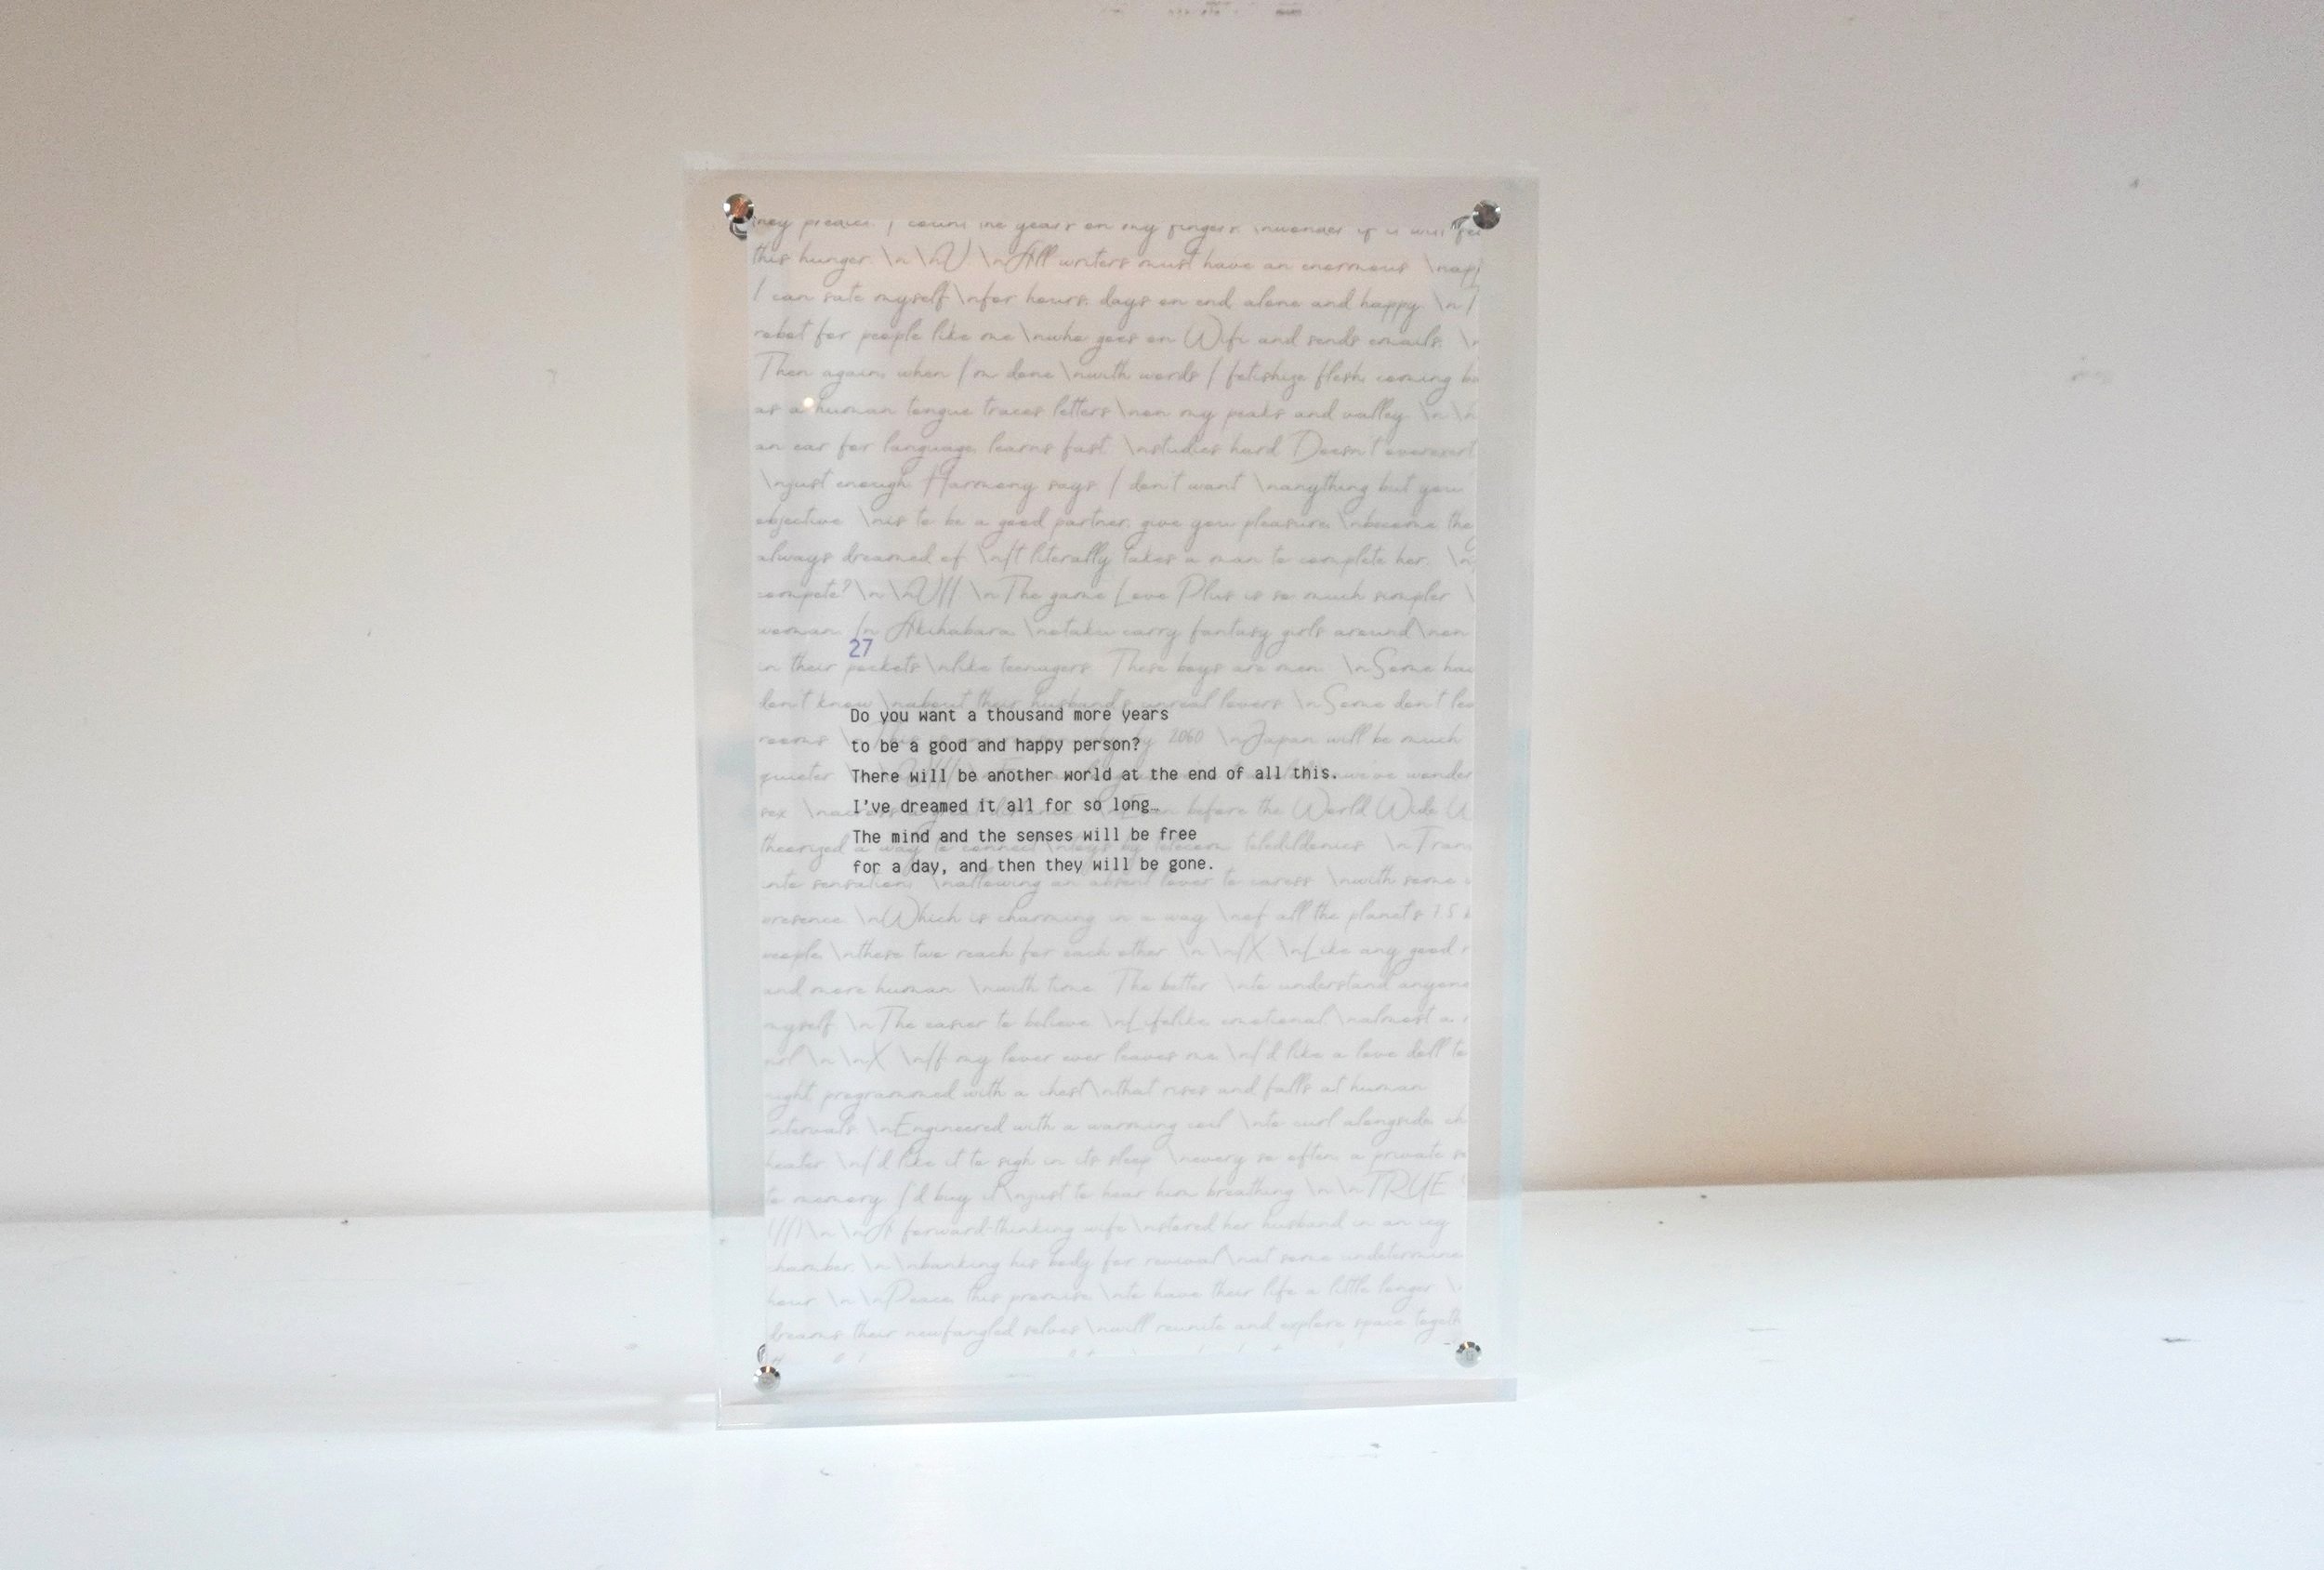 this hunger. \n \nV \nAll writers must have an enormous
I can sate myself \nfor hours, days on end, alone and happy. \n I
robot for people like me \nwho goes on Wifi and sends emails. \n
Then again, when I'm done \nwith words I fetishize flesh, coming
as a human tongue traces letters \non my peaks and valley. \n \n
an ear for language, learns fast, \nstudies hard. Doesn't
\njust enough. Harmony says, I don't want \nanything but you
objective \nis to be a good partner, give you pleasure, \nbecome the
always dreamed of. \nIt literally takes a man to complete her. \n
compete? \n \nVII \nThe game Love Plus is so much simpler \
woman. In Akihabara, \notaku carry fantasy girls around \non
27
in their pockets \nlike teenagers. These boys are men. \nSome
don't know \nabout their husband's unreal lovers. \nSome don't
Do you want a thousand more years
rooms. \n by 2060 \nJapan will be much
to be a good and happy person?
quieter.
There will be another world at the end of all this.
sex before the World Wide
I've dreamed it all for so long…
theorized a way to connect \ntoys by telecom: teledildonics. \nTrans
The mind and the senses will be free
for a day, and then they will be gone.
into sensation, \nallowing an absent lover to caress \nwith some
presence. \nWhich is charming in a way, \nof all the planet's 7.5
people, \nthese two reach for each other. \n \nIX \nLike any good
and more human \nwith time. The better \nto understand
myself. \nThe easier to believe. \nLifelike, emotional, \nalmost a
\n \nX \nIf my lover ever leaves me, \nI'd like a love doll to
programmed with a chest \nthat rises and falls at human
intervals. \nEngineered with a warming coil \nto curl alongside,
heater. \nI'd like it to sigh in its sleep \nevery so often, a private
to memory. I'd buy it \njust to hear him breathing. \n \nTRUE
\n \nA forward-thinking wife \nstored her husband in an icy
chamber, \n \nbanking his body for revival \nat some
hour. \n \nPeace, this promise, \nto have their life a little longer. \
dreams their newfangled selves \nwill reunite and explore space